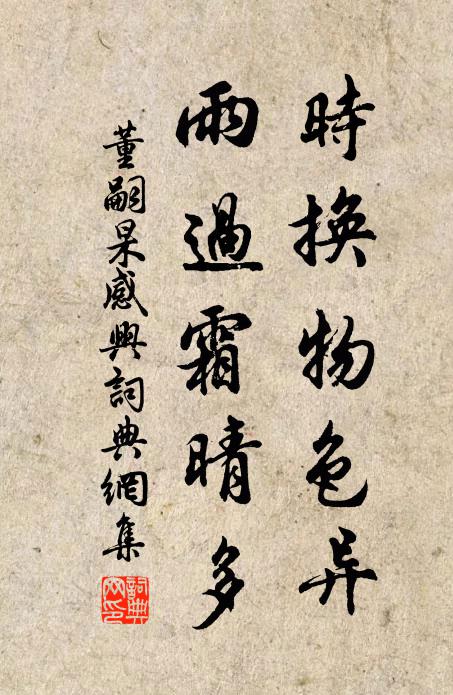 時換物色异
雨過霜晴多
董嗣杲感興詞典網集
詞典網印